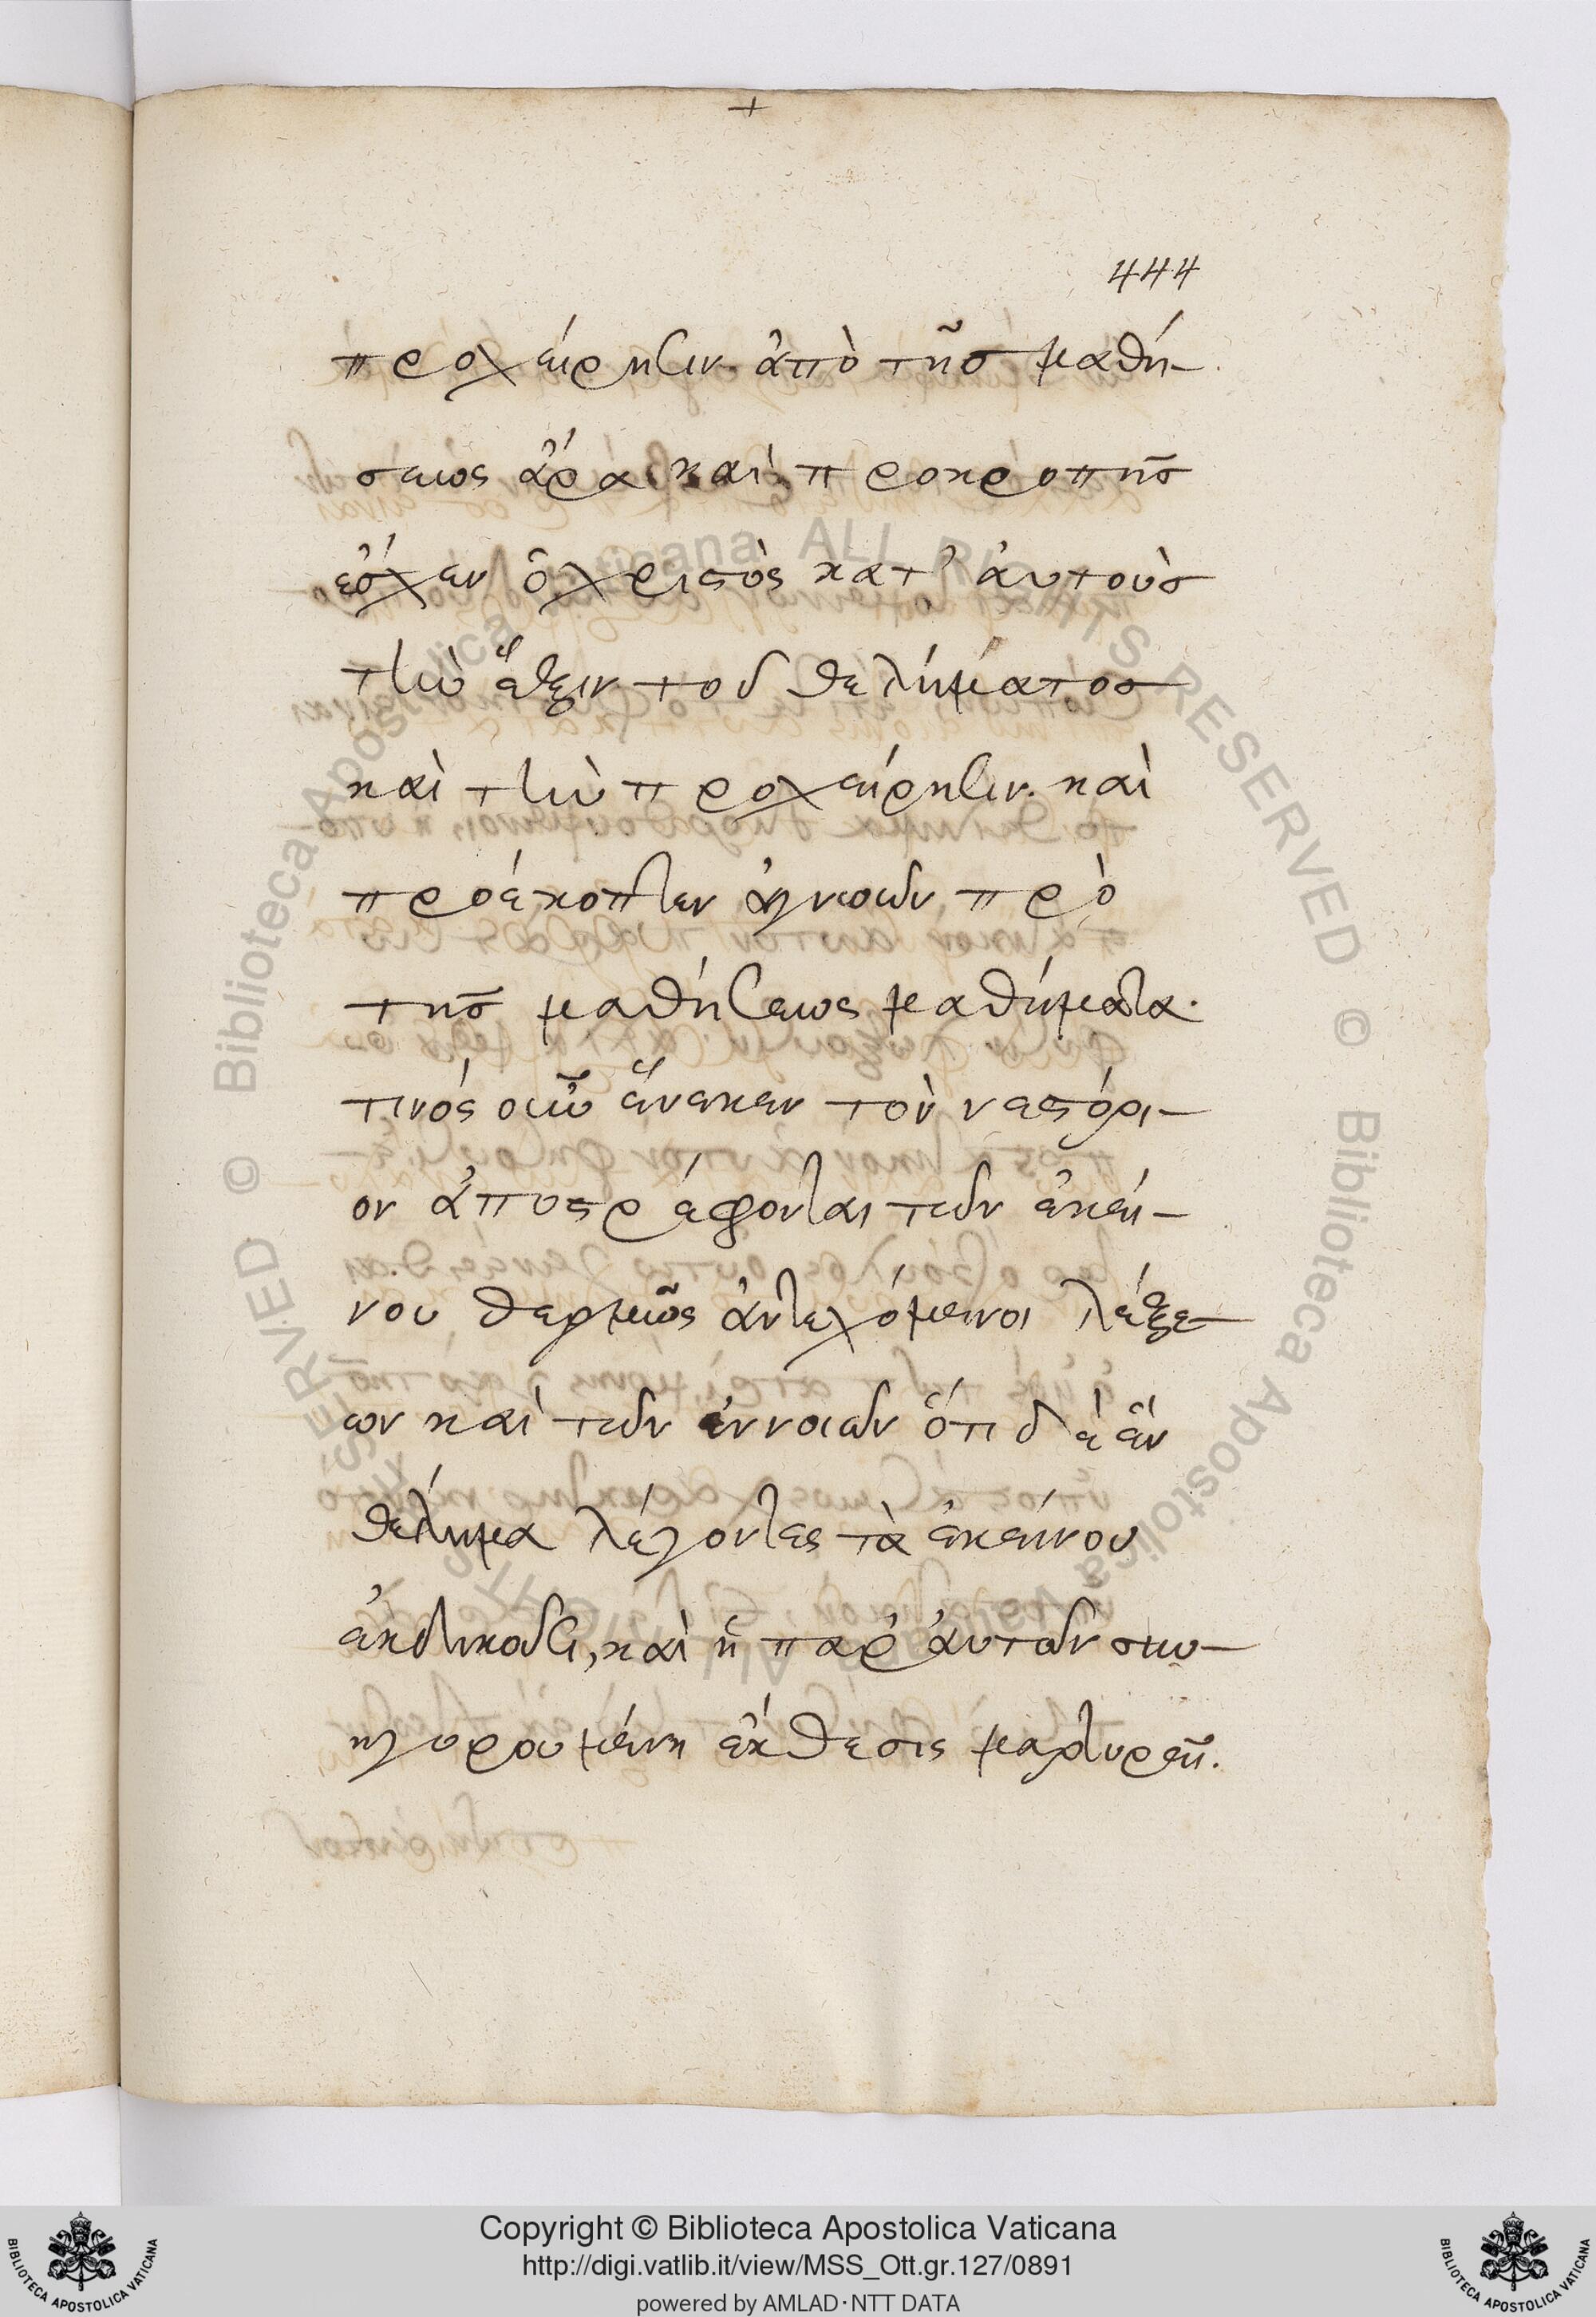 +
444
προχείρησιν. ἀπὸ τῆς μαθή-
σεως ἄρα καὶ προκροπῆς
ἔσχεν ὁ χριστὸς κατ' ἀυτοὺς
τὴν ἕξιν τοῦ θελήματος
καὶ τὴν προχείρησιν. καὶ
προέκοπτεν ἀγνοῶν πρὸ
τῆς μαθήσεως μαθήματα.
τινός οὖν ἕνεκεν τὸν νεστόρι-
ον ἀποστρέφονται τῶν ἐκεί-
νου θερμῶς ἀντεχόμενοι λέξε-
ων καὶ τῶν ἐννοιῶν ὅτι δὲ ἓν
θέλημα λέγοντες τὰ ἐκείνου
ἐκδικοῦσι, καὶ ἡ παρ' ἀυτῶν συν-
ηγορουμένη ἔκθεσις μαρτυρεῖ.
Copyright © Biblioteca Apostolica Vaticana
http://digi.vatlib.it/view/MSS_Ott.gr.127/0891
powered by AMLAD·NTT DATA
BIBLIOTECA APOSTOLICA VATICANA
BIBLIOTECA APOSTOLICA VATICANA
© Biblioteca Apostolica Vaticana ALL RIGHTS RESERVED
© Biblioteca Apostolica Vaticana ALL RIGHTS RESERVED